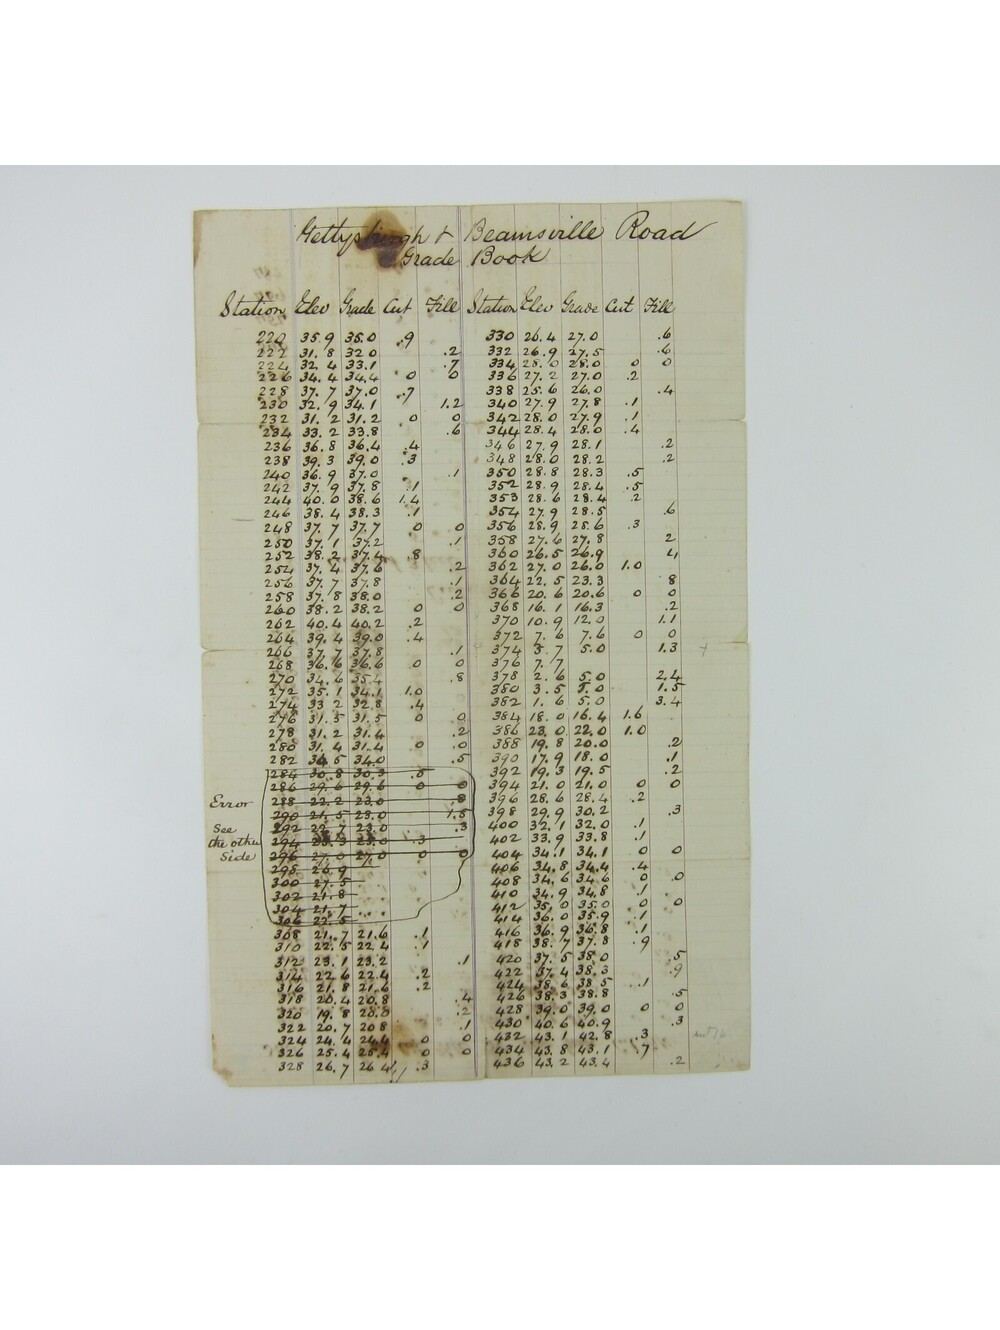 Gettysburgh & Beamsville Road
Grade Book
Station Elev Grade Cut Fill Station Elev Grade Cut Fill
220 35.9 35.0 .9
222 31.8 32.0 .2
224 32.4 33.1 .7
226 34.4 34.4 0 0
228 37.7 37.0 .7
230 32.9 34.1 1.2
232 31.2 31.2 0 0
234 33.2 33.8 .6
236 36.8 36.4 .4
238 39.3 39.0 .3
240 36.9 37.0 .1
242 37.9 37.8 .1
244 40.0 38.6 1.4
246 38.4 38.3 .1
248 37.7 37.7 0 0
250 37.1 37.2 .1
252 38.2 37.4 .8
254 37.4 37.6 .2
256 37.7 37.8 .1
258 37.8 38.0 .2
260 38.2 38.2 0 0
262 40.4 40.2 .2
264 39.4 39.0 .4
266 37.7 37.8 .1
268 36.6 36.6 0 0
270 34.6 35.4 .8
272 35.1 34.1 1.0
274 33.2 32.8 .4
276 31.5 31.5 0 0
278 31.2 31.4 .2
280 31.4 31.4 0 .0
282 34.5 34.0 .5
284 30.8 30.3 .5
286 29.6 29.6 0 0
288 22.2 23.0 .8
290 21.5 23.0 1.5
292 22.7 23.0 .3
294 23.3 23.0 .3
296 27.0 27.0 0 0
298 26.9
300 27.5
302 21.8
304 21.7
306 22.5
Error
See
the other
Side
308 21.7 21.6 .1
310 22.5 22.4 .1
312 23.1 23.2 .1
314 22.6 22.4 .2
316 21.8 21.6 .2
318 20.4 20.8 .4
320 19.8 20.0 .2
322 20.7 20.8 .1
324 24.4 24.4 0 0
326 25.4 25.4 0 0
328 26.7 26.4 .3
330 26.4 27.0 .6
332 26.9 27.5 .6
334 28.0 28.0 0 0
336 27.2 27.0 .2
338 25.6 26.0 .4
340 27.9 27.8 .1
342 28.0 27.9 .1
344 28.4 28.0 .4
346 27.9 28.1 .2
348 28.0 28.2 .2
350 28.8 28.3 .5
352 28.9 28.4 .5
353 28.6 28.4 .2
354 27.9 28.5 .6
356 28.9 28.6 .3
358 27.6 27.8 2
360 26.5 26.9 4
362 27.0 26.0 1.0
364 22.5 23.3 8
366 20.6 20.6 0 0
368 16.1 16.3 .2
370 10.9 12.0 1.1
372 7.6 7.6 0 0
374 3.7 5.0 1.3
376 7.7
378 2.6 5.0 2.4
380 3.5 5.0 1.5
382 1.6 5.0 3.4
384 18.0 16.4 1.6
386 23.0 22.0 1.0
388 19.8 20.0 .2
390 17.9 18.0 .1
392 19.3 19.5 .2
394 21.0 21.0 0 0
396 28.6 28.4 .2
398 29.9 30.2 .3
400 32.1 32.0 .1
402 33.9 33.8 .1
404 34.1 34.1 0 0
406 34.8 34.4 .4
408 34.6 34.6 0 .0
410 34.9 34.8 .1
412 35.0 35.0 0 0
414 36.0 35.9 .1
416 36.9 36.8 .1
418 38.7 37.8 .9
420 37.5 38.0 .5
422 37.4 38.3 .9
424 38.6 38.5 .1
426 38.3 38.8 .5
428 39.0 39.0 0 0
430 40.6 40.9 .3
432 43.1 42.8 .3
434 43.8 43.1 .7
436 43.2 43.4 .2